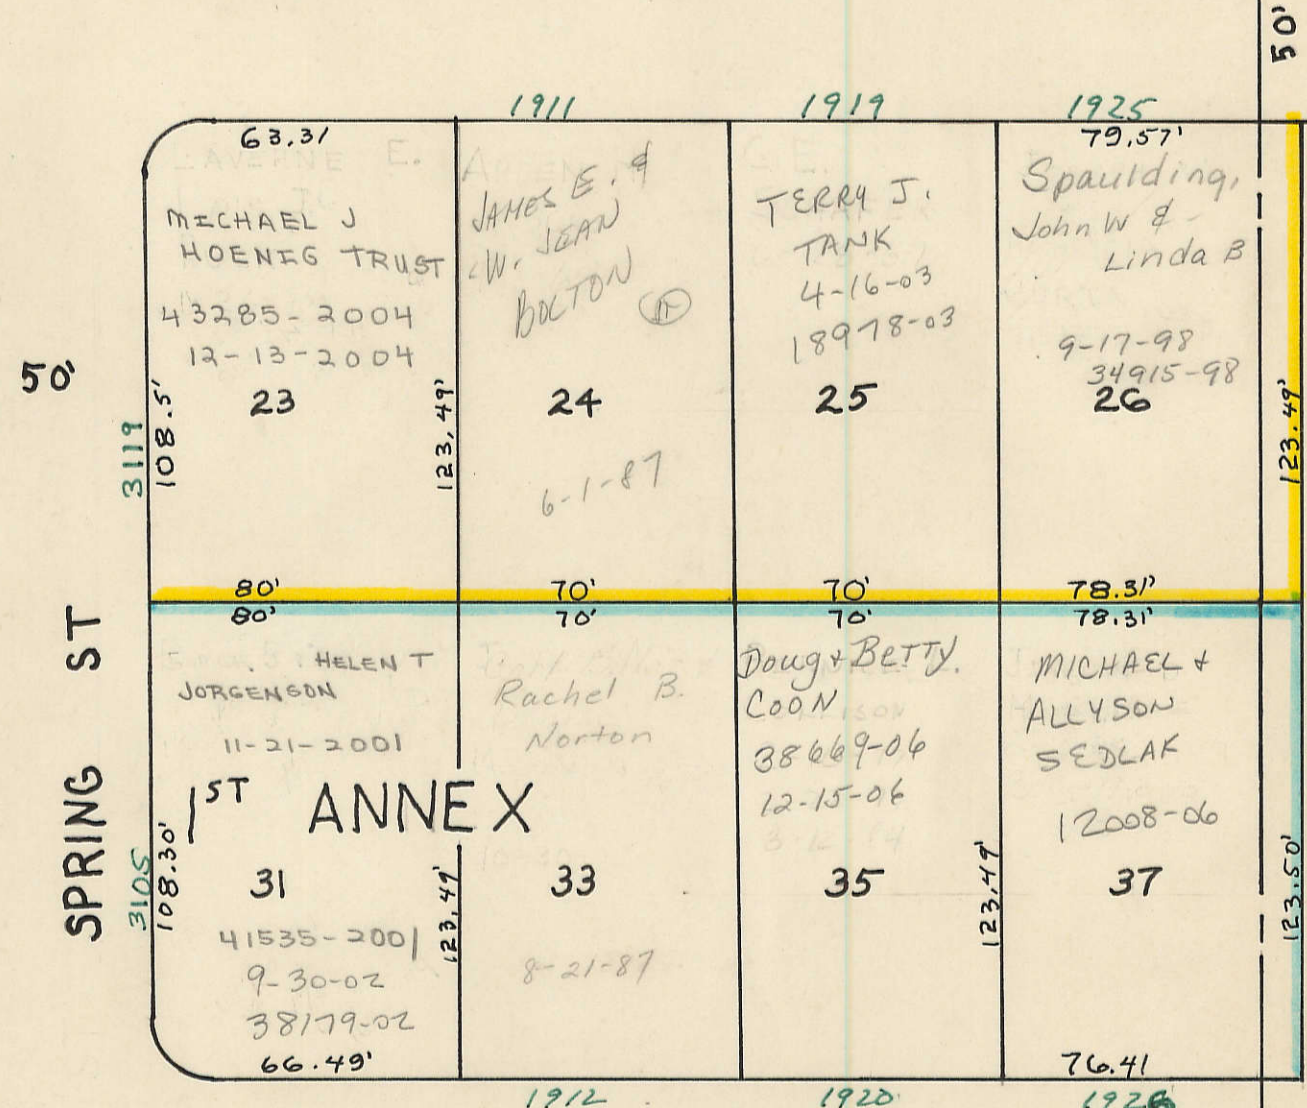 50'
1911
1919
1925
63.31
79.57'
MICHAEL J
HOENIG TRUST
43285-2004
12-13-2004
23
108.5'
3119
123.49'
JAMES E. &
W. JEAN
BOLTON
24
6-1-87
TERRY J.
TANK
4-16-03
18978-03
25
Spaulding,
John W &
Linda B
9-17-98
34915-98
26
123.49'
50'
80'
70'
70'
78.31'
80'
70'
70'
78.31'
SPRING ST
HELEN T
JORGENSON
11-21-2001
1ST ANNEX
31
108.30'
3105
41535-2001
9-30-02
38179-02
66.49'
123.49'
Rachel B.
Norton
33
8-21-87
Doug & BETTY.
COON
38669-06
12-15-06
35
123.49'
MICHAEL &
ALLYSON
SEDLAK
12008-06
37
123.50'
76.41
1912
1920
1926